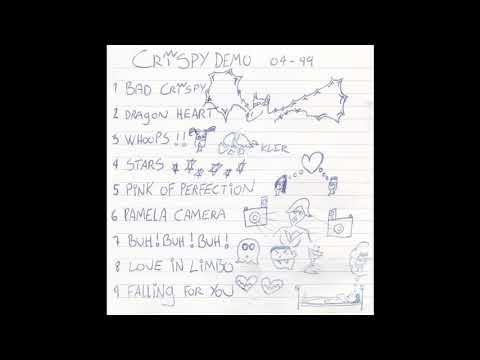 CRiSPY DEMO 04-99
1 BAD CRiSPY
2 DRAGON HEART
3 WHOOPS !! KLIR
4 STARS
5 PiNK OF PERFECTiON
6 PAMELA CAMERA
7 BUH! BUH! BUH!
8 LOVE iN LiMBO
9 FALLiNG FOR YOU